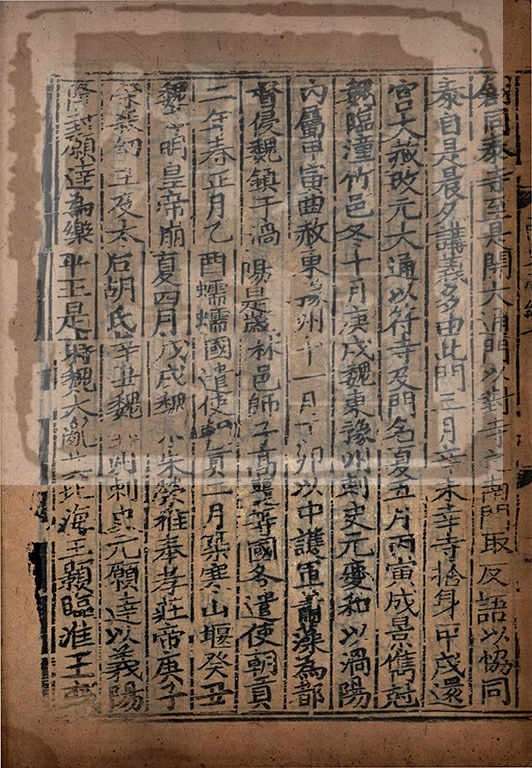 創同泰寺至是開大通門以對寺之南門取反語以協同
泰自是晨夕講義多由此門三月辛未幸寺捨身甲戌還
宮大赦改元大通以符寺及門名夏五月丙寅成景儁剋
魏臨潼竹邑冬十月庚戌魏東豫州刺史元慶和以渦陽
內屬甲寅曲赦東豫州十一月丁卯以中護軍蕭藻為都
督侵魏鎮于渦陽是歲林邑師子高麗等國各遣使朝貢
二年春正月乙酉蠕蠕國遣使 貢二月築寒山堰癸丑
魏孝明皇帝崩夏四月戊戌魏尒朱榮推奉孝莊帝庚子
榮殺幼主及太后胡氏辛丑魏 州刺史元願達以義陽
降封願達為樂平王是時魏大亂其北海王顥臨淮王彧